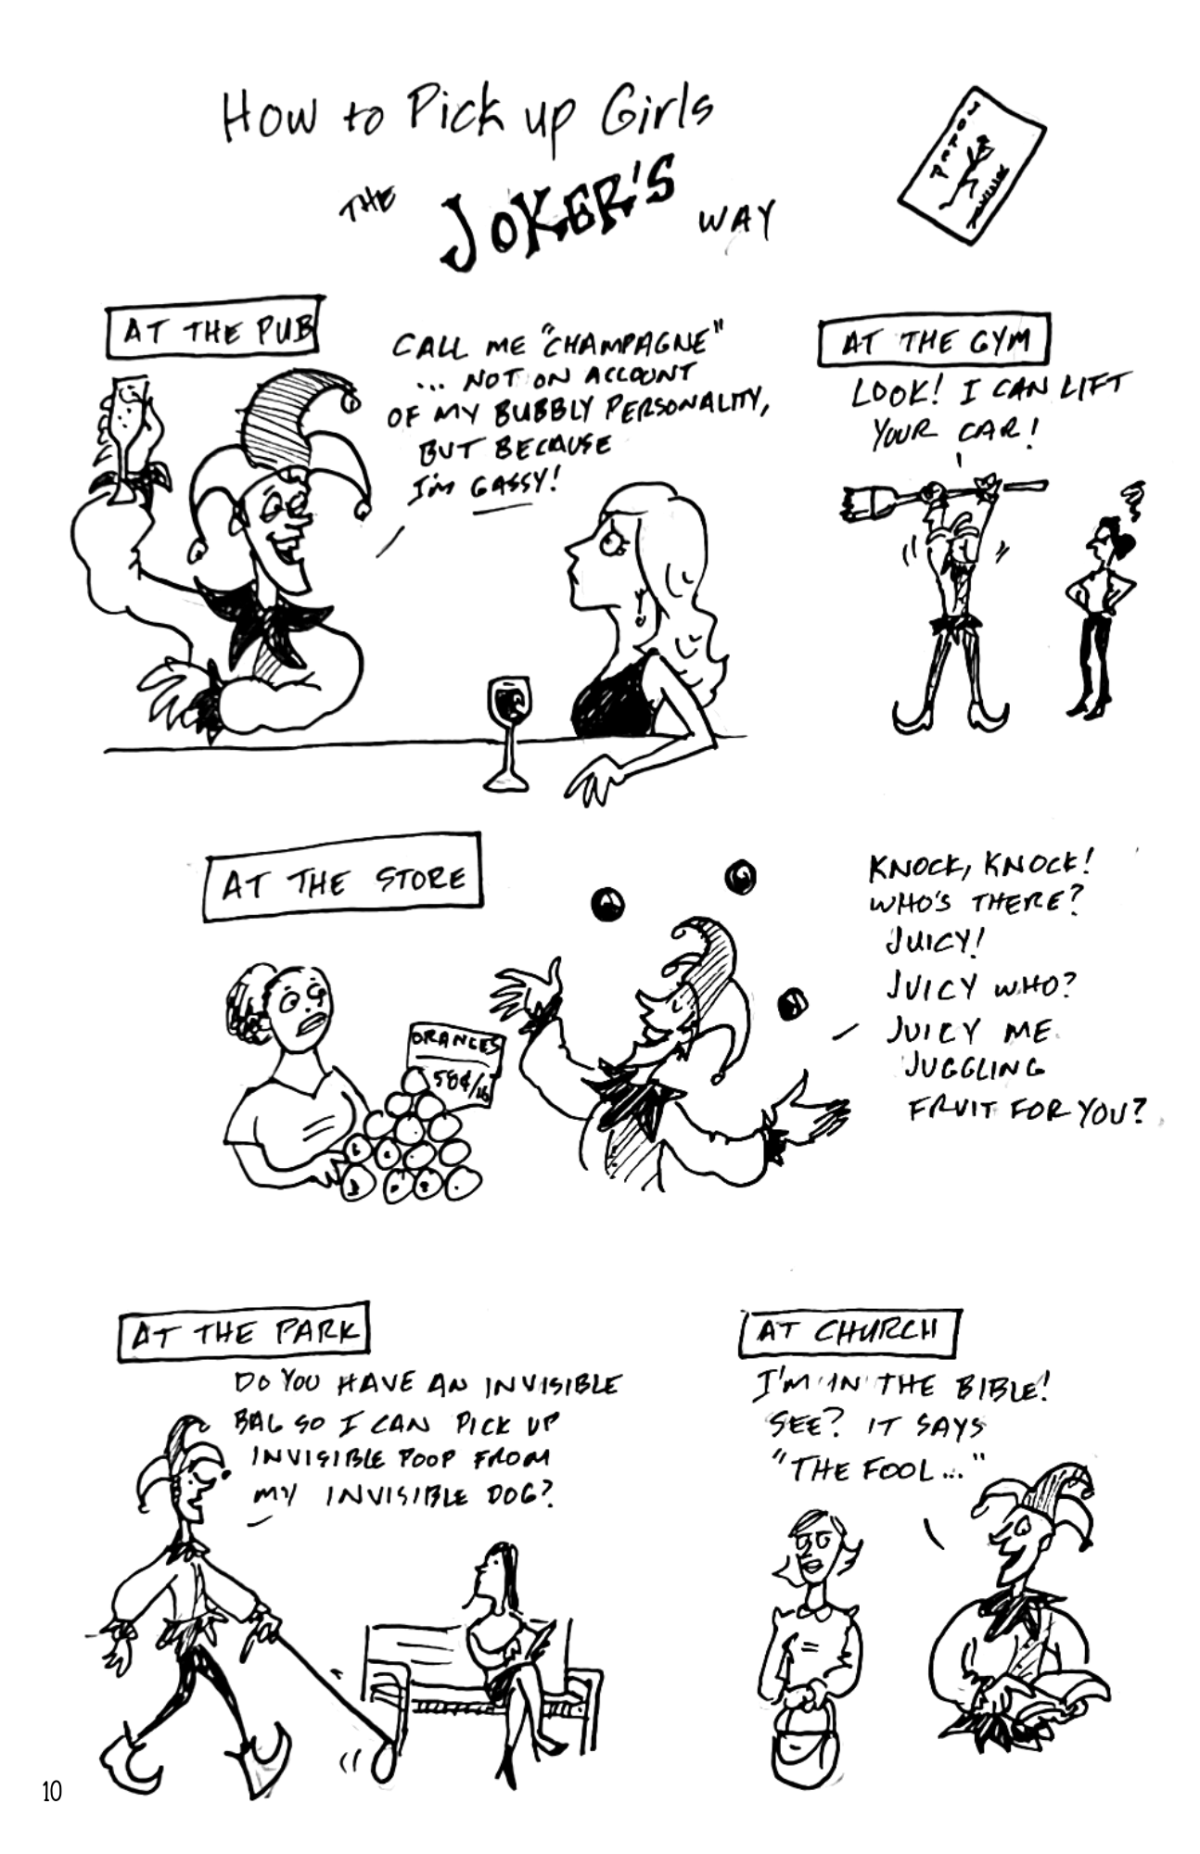 How to Pick up Girls
THE JOKER'S WAY
JOKER
AT THE PUB
CALL ME "CHAMPAGNE"
... NOT ON ACCOUNT
OF MY BUBBLY PERSONALITY,
BUT BECAUSE
I'M GASSY!
AT THE GYM
LOOK! I CAN LIFT
YOUR CAR!
AT THE STORE
ORANGES
58¢/lb
KNOCK, KNOCK!
WHO'S THERE?
JUICY!
JUICY WHO?
JUICY ME
JUGGLING
FRUIT FOR YOU?
AT THE PARK
DO YOU HAVE AN INVISIBLE
BAG SO I CAN PICK UP
INVISIBLE POOP FROM
MY INVISIBLE DOG?
AT CHURCH
I'M IN THE BIBLE!
SEE? IT SAYS
"THE FOOL..."
10